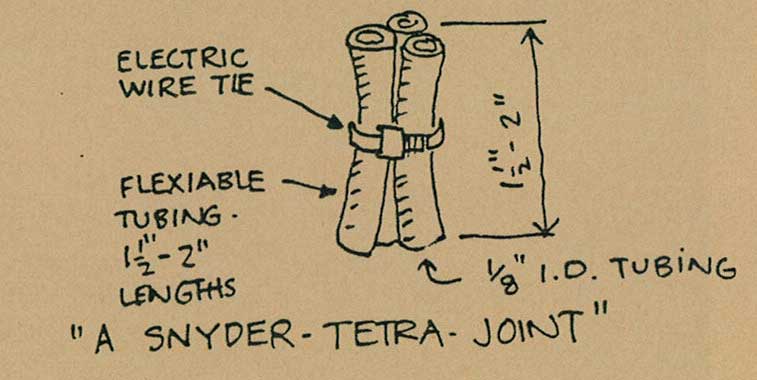 ELECTRIC
WIRE TIE
FLEXIABLE
TUBING.
1 1/2" - 2"
LENGTHS
1 1/2" - 2"
1/8" I.D. TUBING
"A SNYDER-TETRA-JOINT"